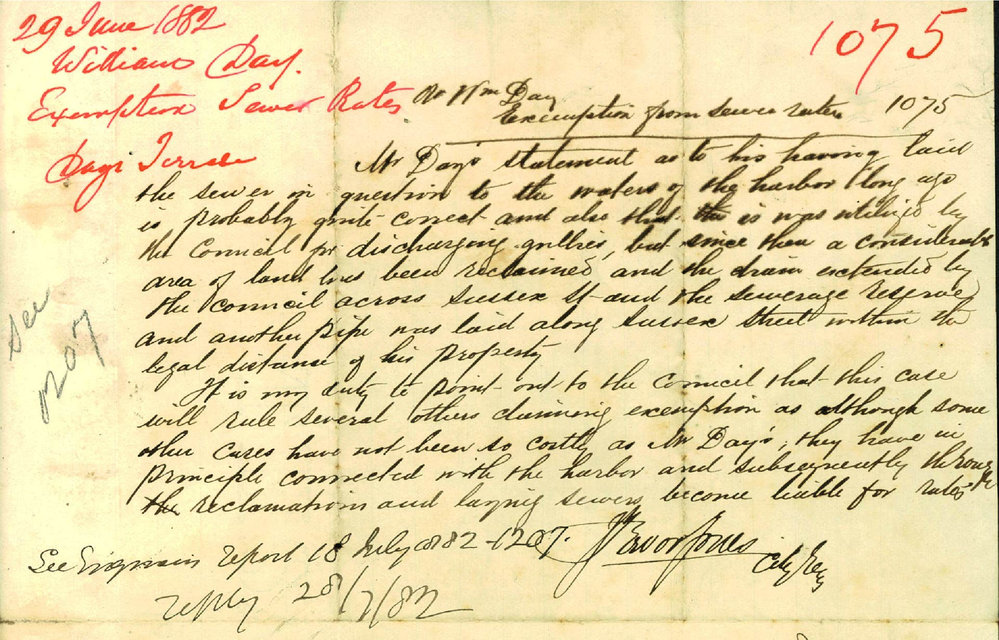 29 June 1882
William Day.
Exemption Sewer Rates
Days Terrace
1075
Wm Day
Exemption from sewer rates 1075
Mr Day's statement as to his having laid
the sewer in question to the waters of the harbor long ago
is probably quite correct and also that this is was utilized by
the Council for discharging gullies, but since then a considerable
area of land has been reclaimed and the drain extended by
the council across Sussex St and the sewerage reserve
and another pipe was laid along Sussex Street within the
legal distance of his property
It is my duty to point out to the Council that this case
will rule several others claiming exemption as although some
other cases have not been so costly as Mr Day's, they have in
principle connected with the harbor and subsequently through
the reclamations and laying sewers become liable for rates
See 1207
See Engineers report 18 July 1882 - 1207.
Trevor Jones
City Eng
reply 28/7/82